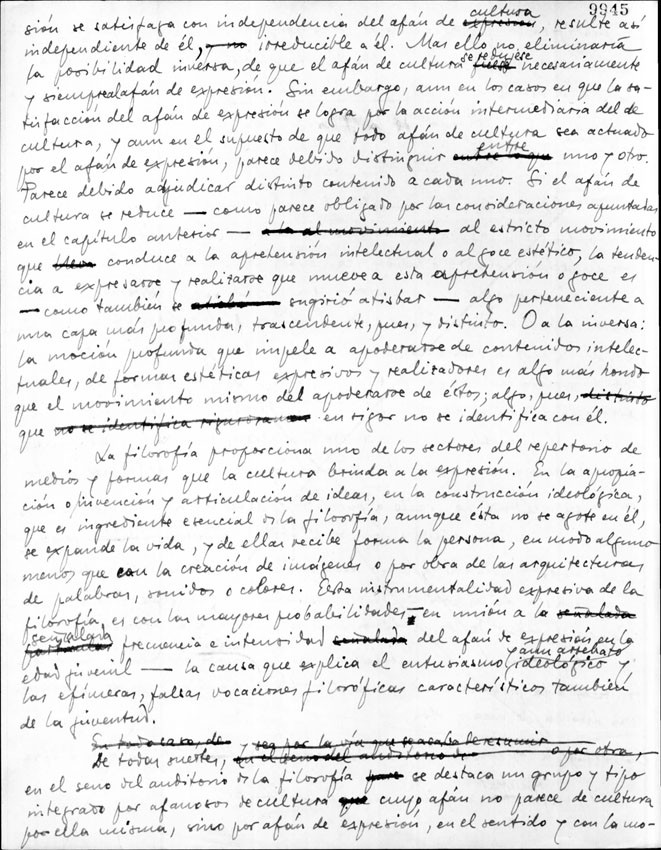 9945
sión se satisfaga con independencia del afán de cultura, resulte así
independiente de él, irreducible a él. Mas ello no eliminaría
la posibilidad inversa, de que el afán de cultura se redujese necesariamente
y siempre al afán de expresión. Sin embargo, aun en los casos en que la sa-
tisfacción del afán de expresión se logra por la acción intermediaria del de
cultura, y aun en el supuesto de que todo afán de cultura sea actuado
por el afán de expresión, parece debido distinguir entre uno y otro.
Parece debido adjudicar distinto contenido a cada uno. Si el afán de
cultura se reduce — como parece obligado por las consideraciones apuntadas
en el capítulo anterior — al estricto movimiento
que conduce a la aprehensión intelectual o al goce estético, la tenden-
cia a expresarse y realizarse que mueve a esta aprehensión o goce es
— como también se sugirió atisbar — algo perteneciente a
una capa más profunda, trascendente, pues, y distinto. O a la inversa:
la moción profunda que impele a apoderarse de contenidos intelec-
tuales, de formas estéticas expresivos y realizadores es algo más hondo
que el movimiento mismo del apoderarse de éstos; algo, pues,
que en rigor no se identifica con él.
La filosofía proporciona uno de los sectores del repertorio de
medios y formas que la cultura brinda a la expresión. En la apropia-
ción o invención y articulación de ideas, en la construcción ideológica,
que es ingrediente esencial de la filosofía, aunque ésta no se agote en él,
se expande la vida, y de ellas recibe forma la persona, en modo alguno
menos que con la creación de imágenes o por obra de las arquitecturas
de palabras, sonidos o colores. Esta instrumentalidad expresiva de la
filosofía es con las mayores probabilidades — en unión a la
señalada frecuencia e intensidad del afán de expresión en la
edad juvenil — la causa que explica el entusiasmo y aun arrebato ideológico y
las efímeras, falsas vocaciones filosóficas características también
de la juventud.
De todas suertes,
en el seno del auditorio de la filosofía se destaca un grupo y tipo
integrado por afanosos de cultura cuyo afán no parece de cultura
por ella misma, sino por afán de expresión, en el sentido y con la mo-